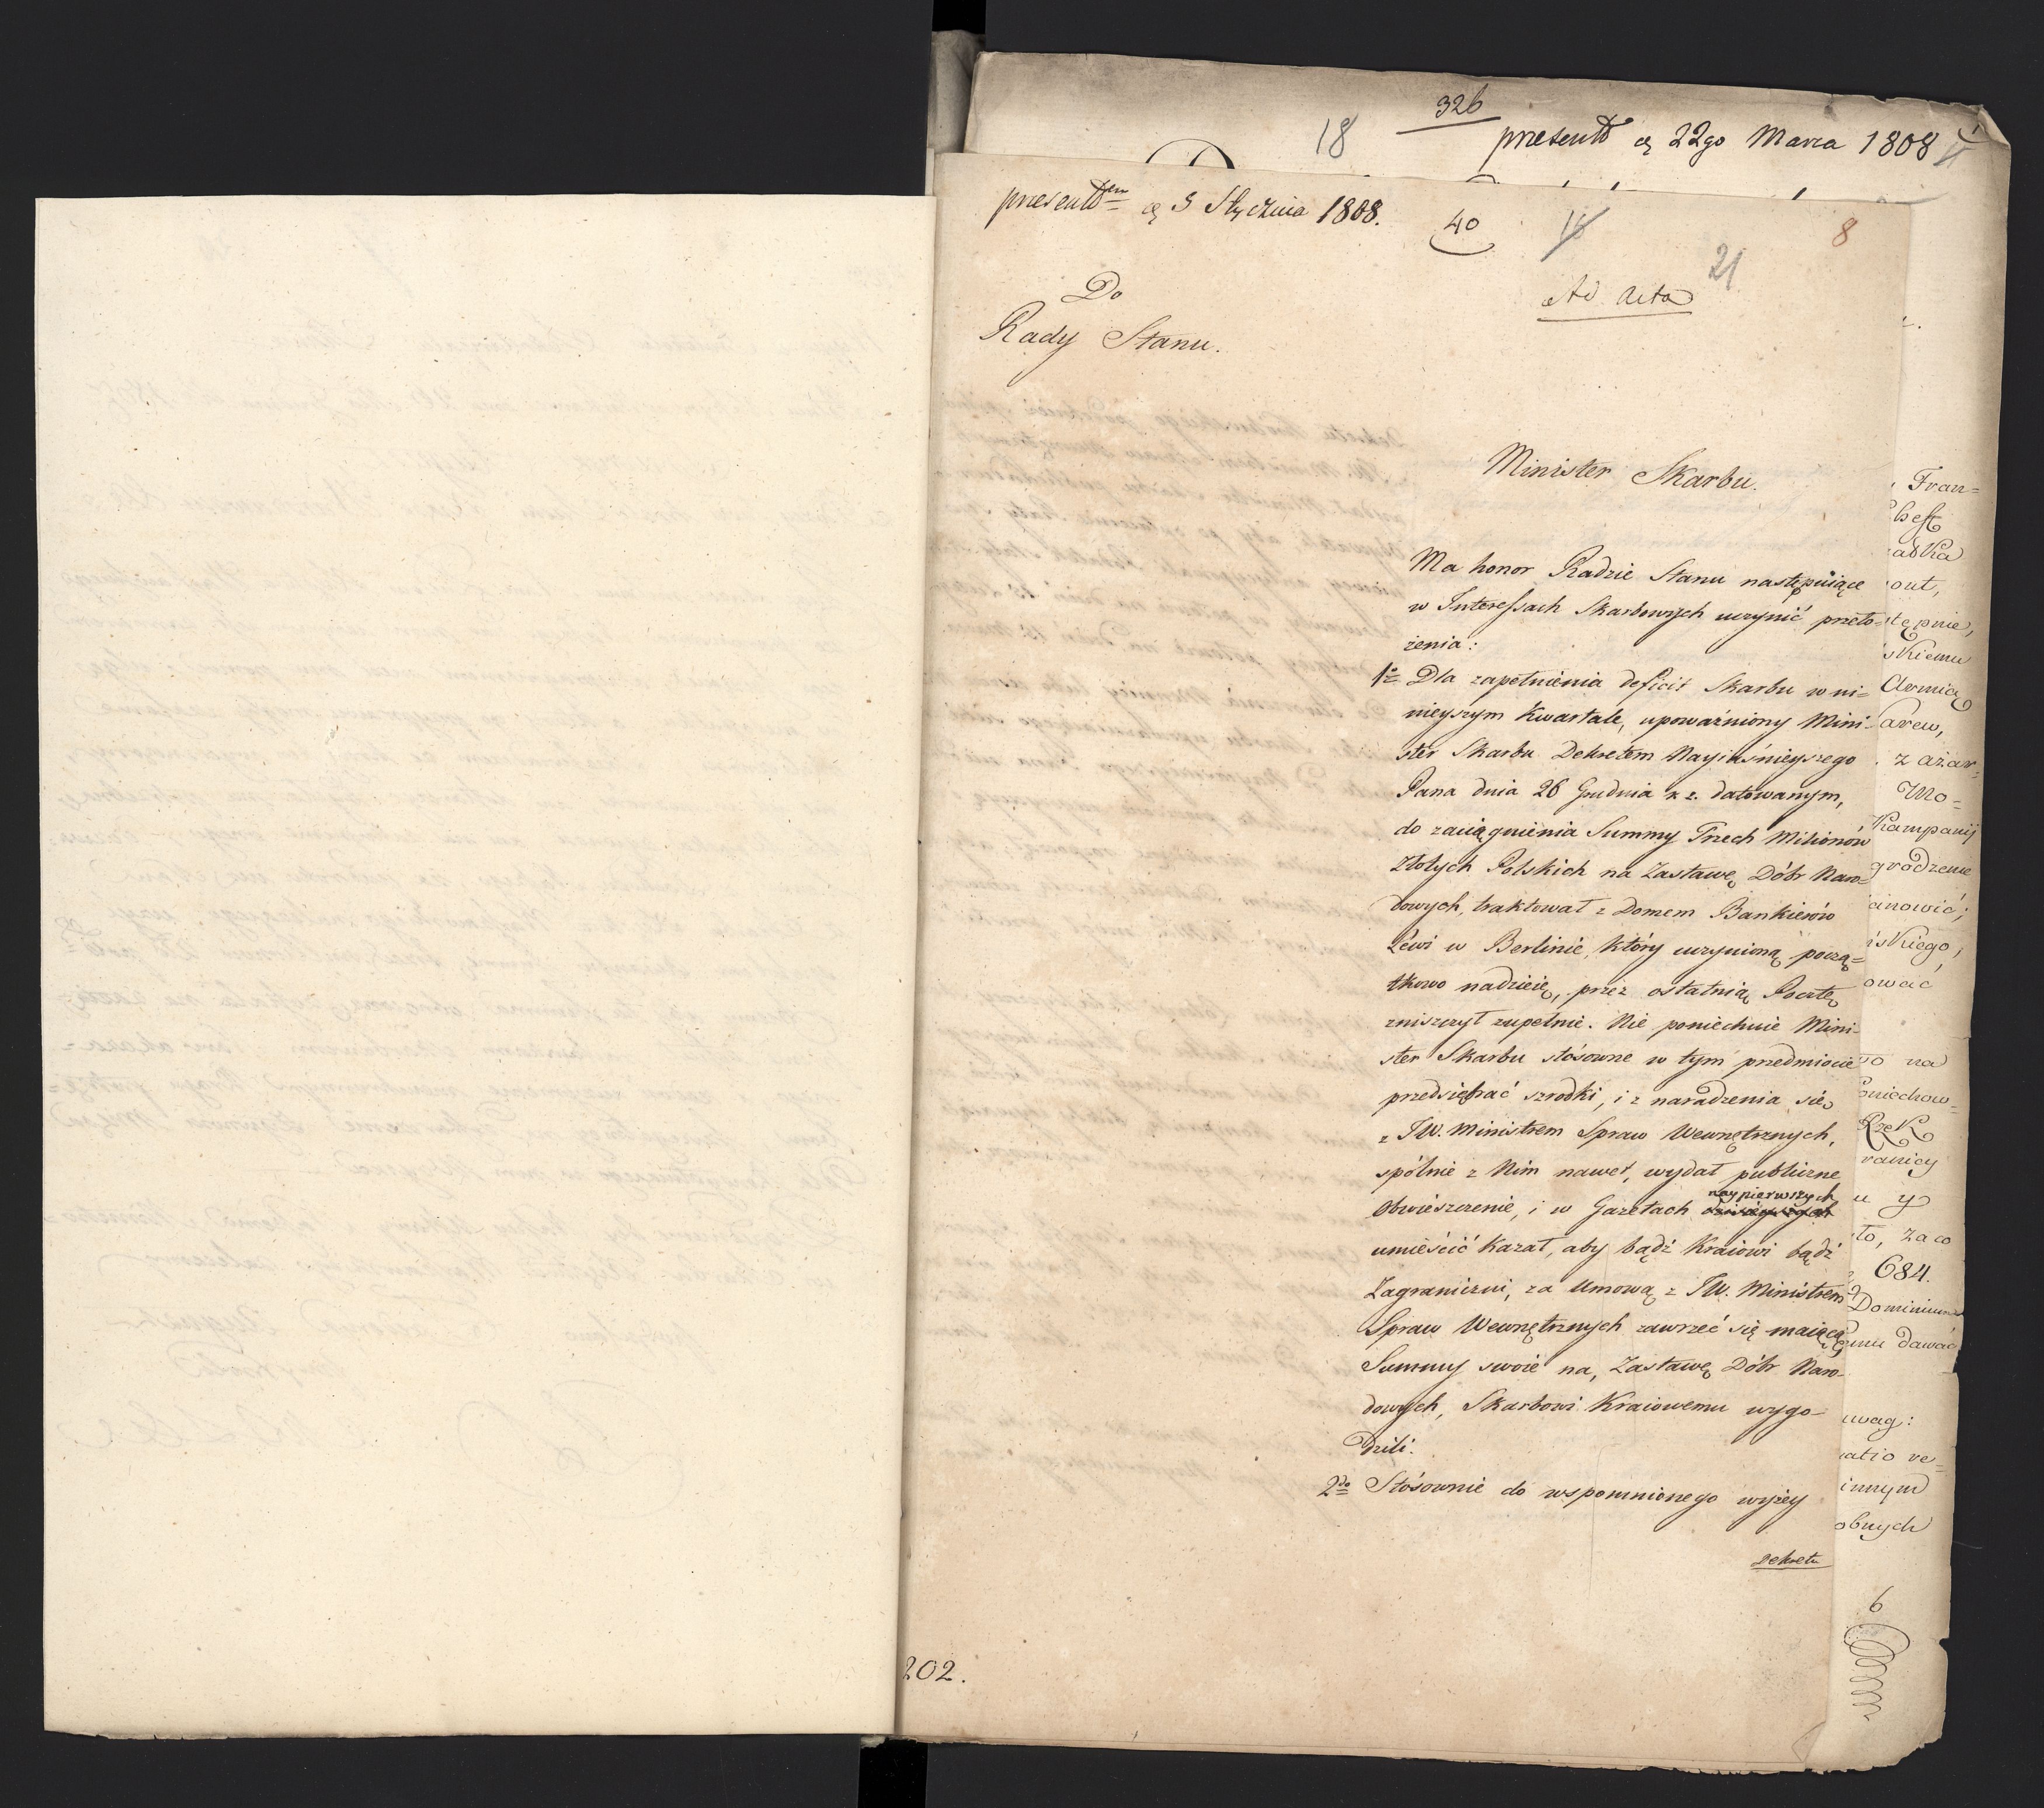 326
18
presentt d. 22go Marca 1808
presenttm d. 3 Stycznia 1808.
40
8
21
Ad Acta
Do
Rady Stanu.
Minister Skarbu.
Ma honor Radzie Stanu następuiące
w Interessach Skarbowych uczynić przeło=
żenia:
1o Dla zapełnienia deficit Skarbu w ni=
nieyszym Kwartale, upoważniony Mini-
ster Skarbu Dekretem Nayiaśnieyszego
Pana dnia 26 Grudnia r. z. datowanym,
do zaciągnienia Summy Trzech Milionów
Złotych Polskich na Zastawę Dóbr Naro-
dowych, traktował z Domem Bankierów
Lewi w Berlinie, który uczynioną począ=
tkowo nadzieię, przez ostatnią Pocztę
zniszczył zupełnie. Nie poniechuie Mini-
ster Skarbu stósowne w tym przedmiocie
przedsiębrać szrodki, i z naradzenia się
z JW. Ministrem Spraw Wewnętrznych,
spólnie z Nim nawet, wydał publiczne
naypierwszych
Obwieszczenie, i w Gazetach dzisieyszych
umieścić kazał, aby bądź Kraiowi bądź
Zagraniczni, za Umową z JW. Ministrem
Spraw Wewnętrznych zawrzeć się maiącą,
Summy swoie na, Zastawę Dóbr Naro-
dowych, Skarbowi Kraiowemu wygo-
dzili.
2do Stósownie do wspomnionego wyżey
Dekretu
202.
Fran=
out,
skiemu
z ażar=
Mo=
Kampanij
grodzenie
anowić;
skiego,
ować
na
oniechow=
Rzek
ranicy
u y
to, za co
684.
Dominium
emu dawać
uwag:
atio re=
innym
obnych
6